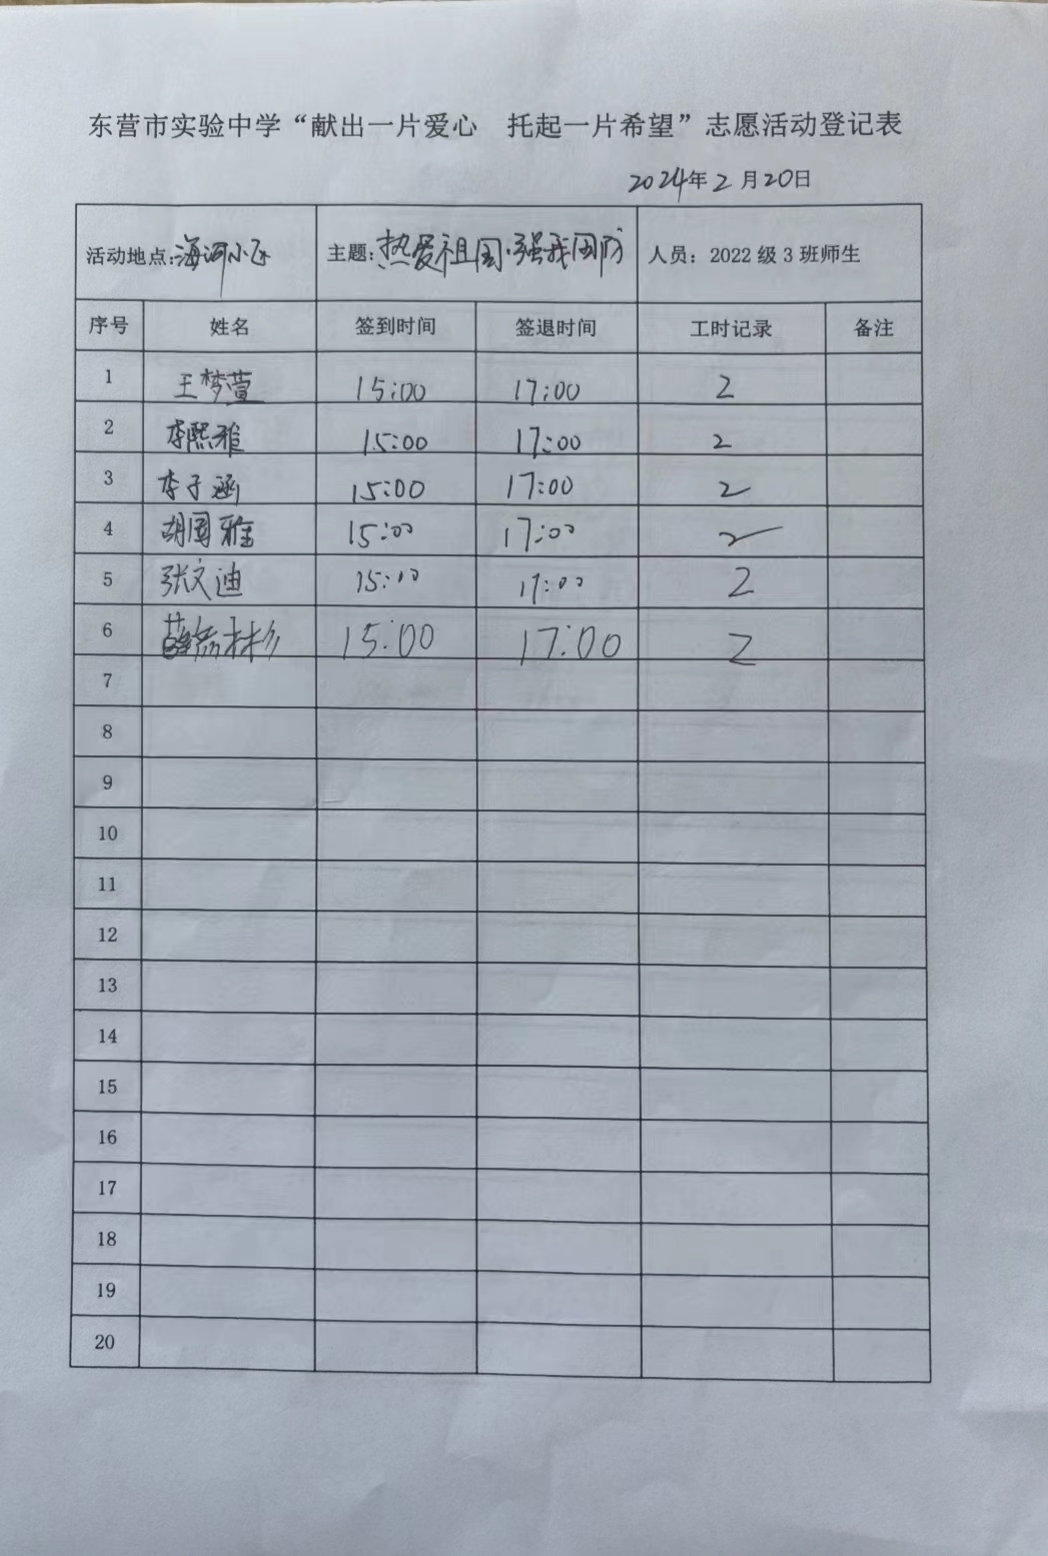 东营市实验中学“献出一片爱心 托起一片希望”志愿活动登记表
2024年2月20日
活动地点:海河小区 主题:热爱祖国·强我国防 人员：2022级3班师生
序号 姓名 签到时间 签退时间 工时记录 备注
1 王梦萱 15:00 17:00 2
2 李熙雅 15:00 17:00 2
3 李子涵 15:00 17:00 2
4 胡圆雅 15:00 17:00 2
5 张文迪 15:10 17:00 2
6 15:00 17:00 2
7
8
9
10
11
12
13
14
15
16
17
18
19
20